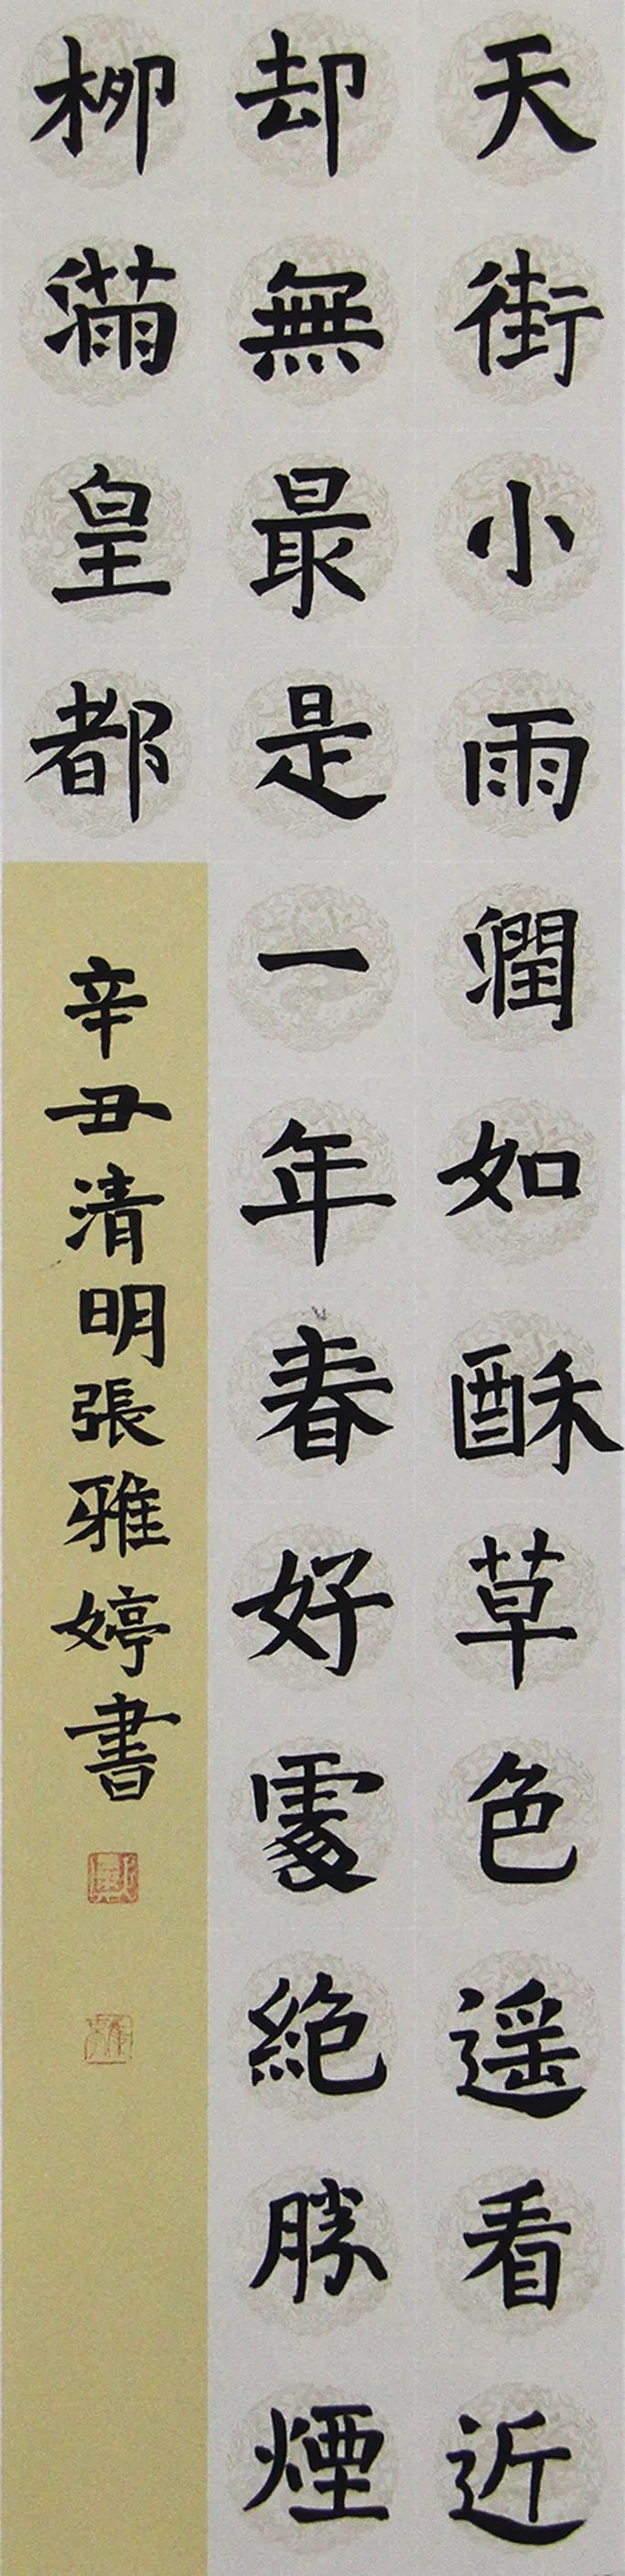 天街小雨潤如酥草色遥看近
却無最是一年春好處絕勝煙
柳滿皇都
辛丑清明張雅婷書